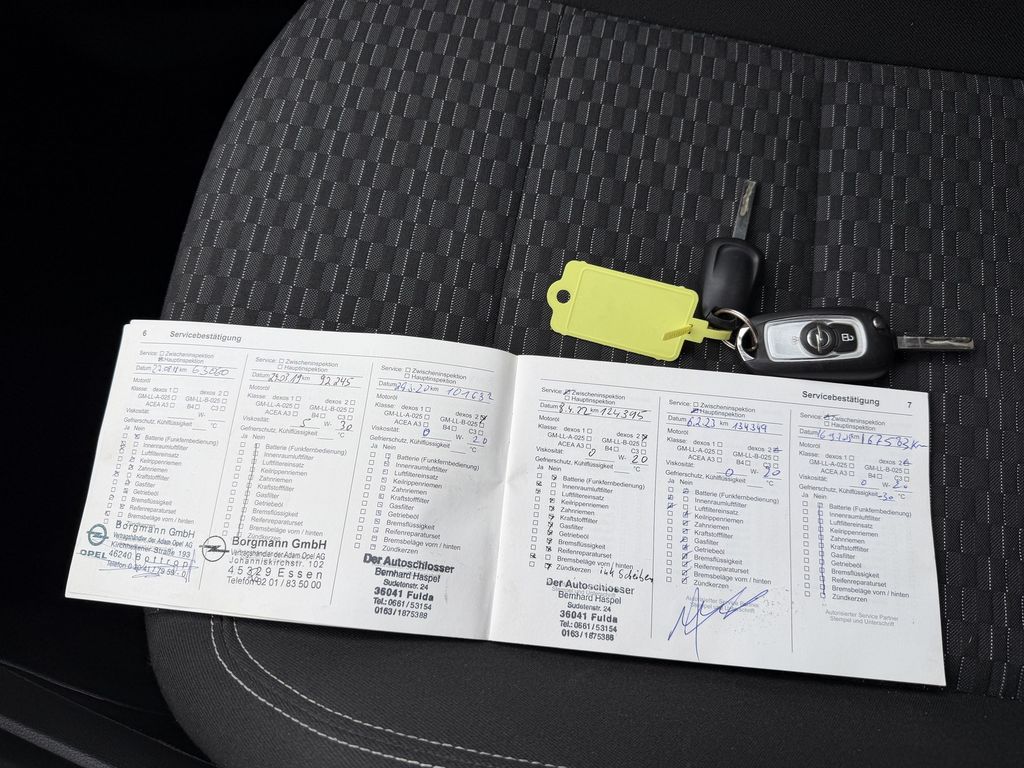 6 Servicebestätigung
Service: Zwischeninspektion
Hauptinspektion
Datum km 63060
Motoröl
Klasse: dexos 1 dexos 2
GM-LL-A-025 GM-LL-B-025
ACEA A3 B4 C3
Viskosität: W-
Gefrierschutz, Kühlflüssigkeit °C
Ja Nein
Batterie (Funkfernbedienung)
Innenraumluftfilter
Luftfiltereinsatz
Keilrippenriemen
Zahnriemen
Kraftstofffilter
Gasfilter
Getriebeöl
Bremsflüssigkeit
Reifenreparaturset
Bremsbeläge vorn / hinten
Borgmann GmbH
Vertragshändler der Adam Opel AG
Kirchhellener Straße 193
46240 Bottrop
OPEL
Service: Zwischeninspektion
Hauptinspektion
Datum 24.01.19 km 92.245
Motoröl
Klasse: dexos 1 dexos 2
GM-LL-A-025 GM-LL-B-025
ACEA A3 B4 C3
Viskosität: 5 W- 30
Gefrierschutz, Kühlflüssigkeit °C
Ja Nein
Batterie (Funkfernbedienung)
Innenraumluftfilter
Luftfiltereinsatz
Keilrippenriemen
Zahnriemen
Kraftstofffilter
Gasfilter
Getriebeöl
Bremsflüssigkeit
Reifenreparaturset
Bremsbeläge vorn / hinten
Zündkerzen
Borgmann GmbH
Vertragshändler der Adam Opel AG
Johanniskirchstr. 102
45329 Essen
Telefon 02 01 / 83 50 00
Service: Zwischeninspektion
Hauptinspektion
Datum km 101632
Motoröl
Klasse: dexos 1 dexos 2
GM-LL-A-025 GM-LL-B-025
ACEA A3 B4 C3
Viskosität: 0 W- 20
Gefrierschutz, Kühlflüssigkeit °C
Ja Nein
Batterie (Funkfernbedienung)
Innenraumluftfilter
Luftfiltereinsatz
Keilrippenriemen
Zahnriemen
Kraftstofffilter
Gasfilter
Getriebeöl
Bremsflüssigkeit
Reifenreparaturset
Bremsbeläge vorn / hinten
Zündkerzen
Der Autoschlosser
Bernhard Haspel
Sudetenstr. 24
36041 Fulda
Tel.: 0661 / 53154
0163 / 1875388
Servicebestätigung 7
Service: Zwischeninspektion
Hauptinspektion
Datum 8.4.22 km 124395
Motoröl
Klasse: dexos 1 dexos 2
GM-LL-A-025 GM-LL-B-025
ACEA A3 B4 C3
Viskosität: 0 W- 20
Gefrierschutz, Kühlflüssigkeit °C
Ja Nein
Batterie (Funkfernbedienung)
Innenraumluftfilter
Luftfiltereinsatz
Keilrippenriemen
Zahnriemen
Kraftstofffilter
Gasfilter
Getriebeöl
Bremsflüssigkeit
Reifenreparaturset
Bremsbeläge vorn / hinten
Zündkerzen Scheiben
Der Autoschlosser
Bernhard Haspel
Sudetenstr. 24
36041 Fulda
Tel.: 0661 / 53154
0163 / 1875388
Service: Zwischeninspektion
Hauptinspektion
Datum 6.2.23 km 134349
Motoröl
Klasse: dexos 1 dexos 2
GM-LL-A-025 GM-LL-B-025
ACEA A3 B4 C3
Viskosität: 0 W-
Gefrierschutz, Kühlflüssigkeit °C
Ja Nein
Batterie (Funkfernbedienung)
Innenraumluftfilter
Luftfiltereinsatz
Keilrippenriemen
Zahnriemen
Kraftstofffilter
Gasfilter
Getriebeöl
Bremsflüssigkeit
Reifenreparaturset
Bremsbeläge vorn / hinten
Zündkerzen
Autorisierter Service Partner
Stempel und Unterschrift
Service: Zwischeninspektion
Hauptinspektion
Datum 167583 km
Motoröl
Klasse: dexos 1 dexos 2
GM-LL-A-025 GM-LL-B-025
ACEA A3 B4 C3
Viskosität: 0 W-
Gefrierschutz, Kühlflüssigkeit -30 °C
Ja Nein
Batterie (Funkfernbedienung)
Innenraumluftfilter
Luftfiltereinsatz
Keilrippenriemen
Zahnriemen
Kraftstofffilter
Gasfilter
Getriebeöl
Bremsflüssigkeit
Reifenreparaturset
Bremsbeläge vorn / hinten
Zündkerzen
Autorisierter Service Partner
Stempel und Unterschrift